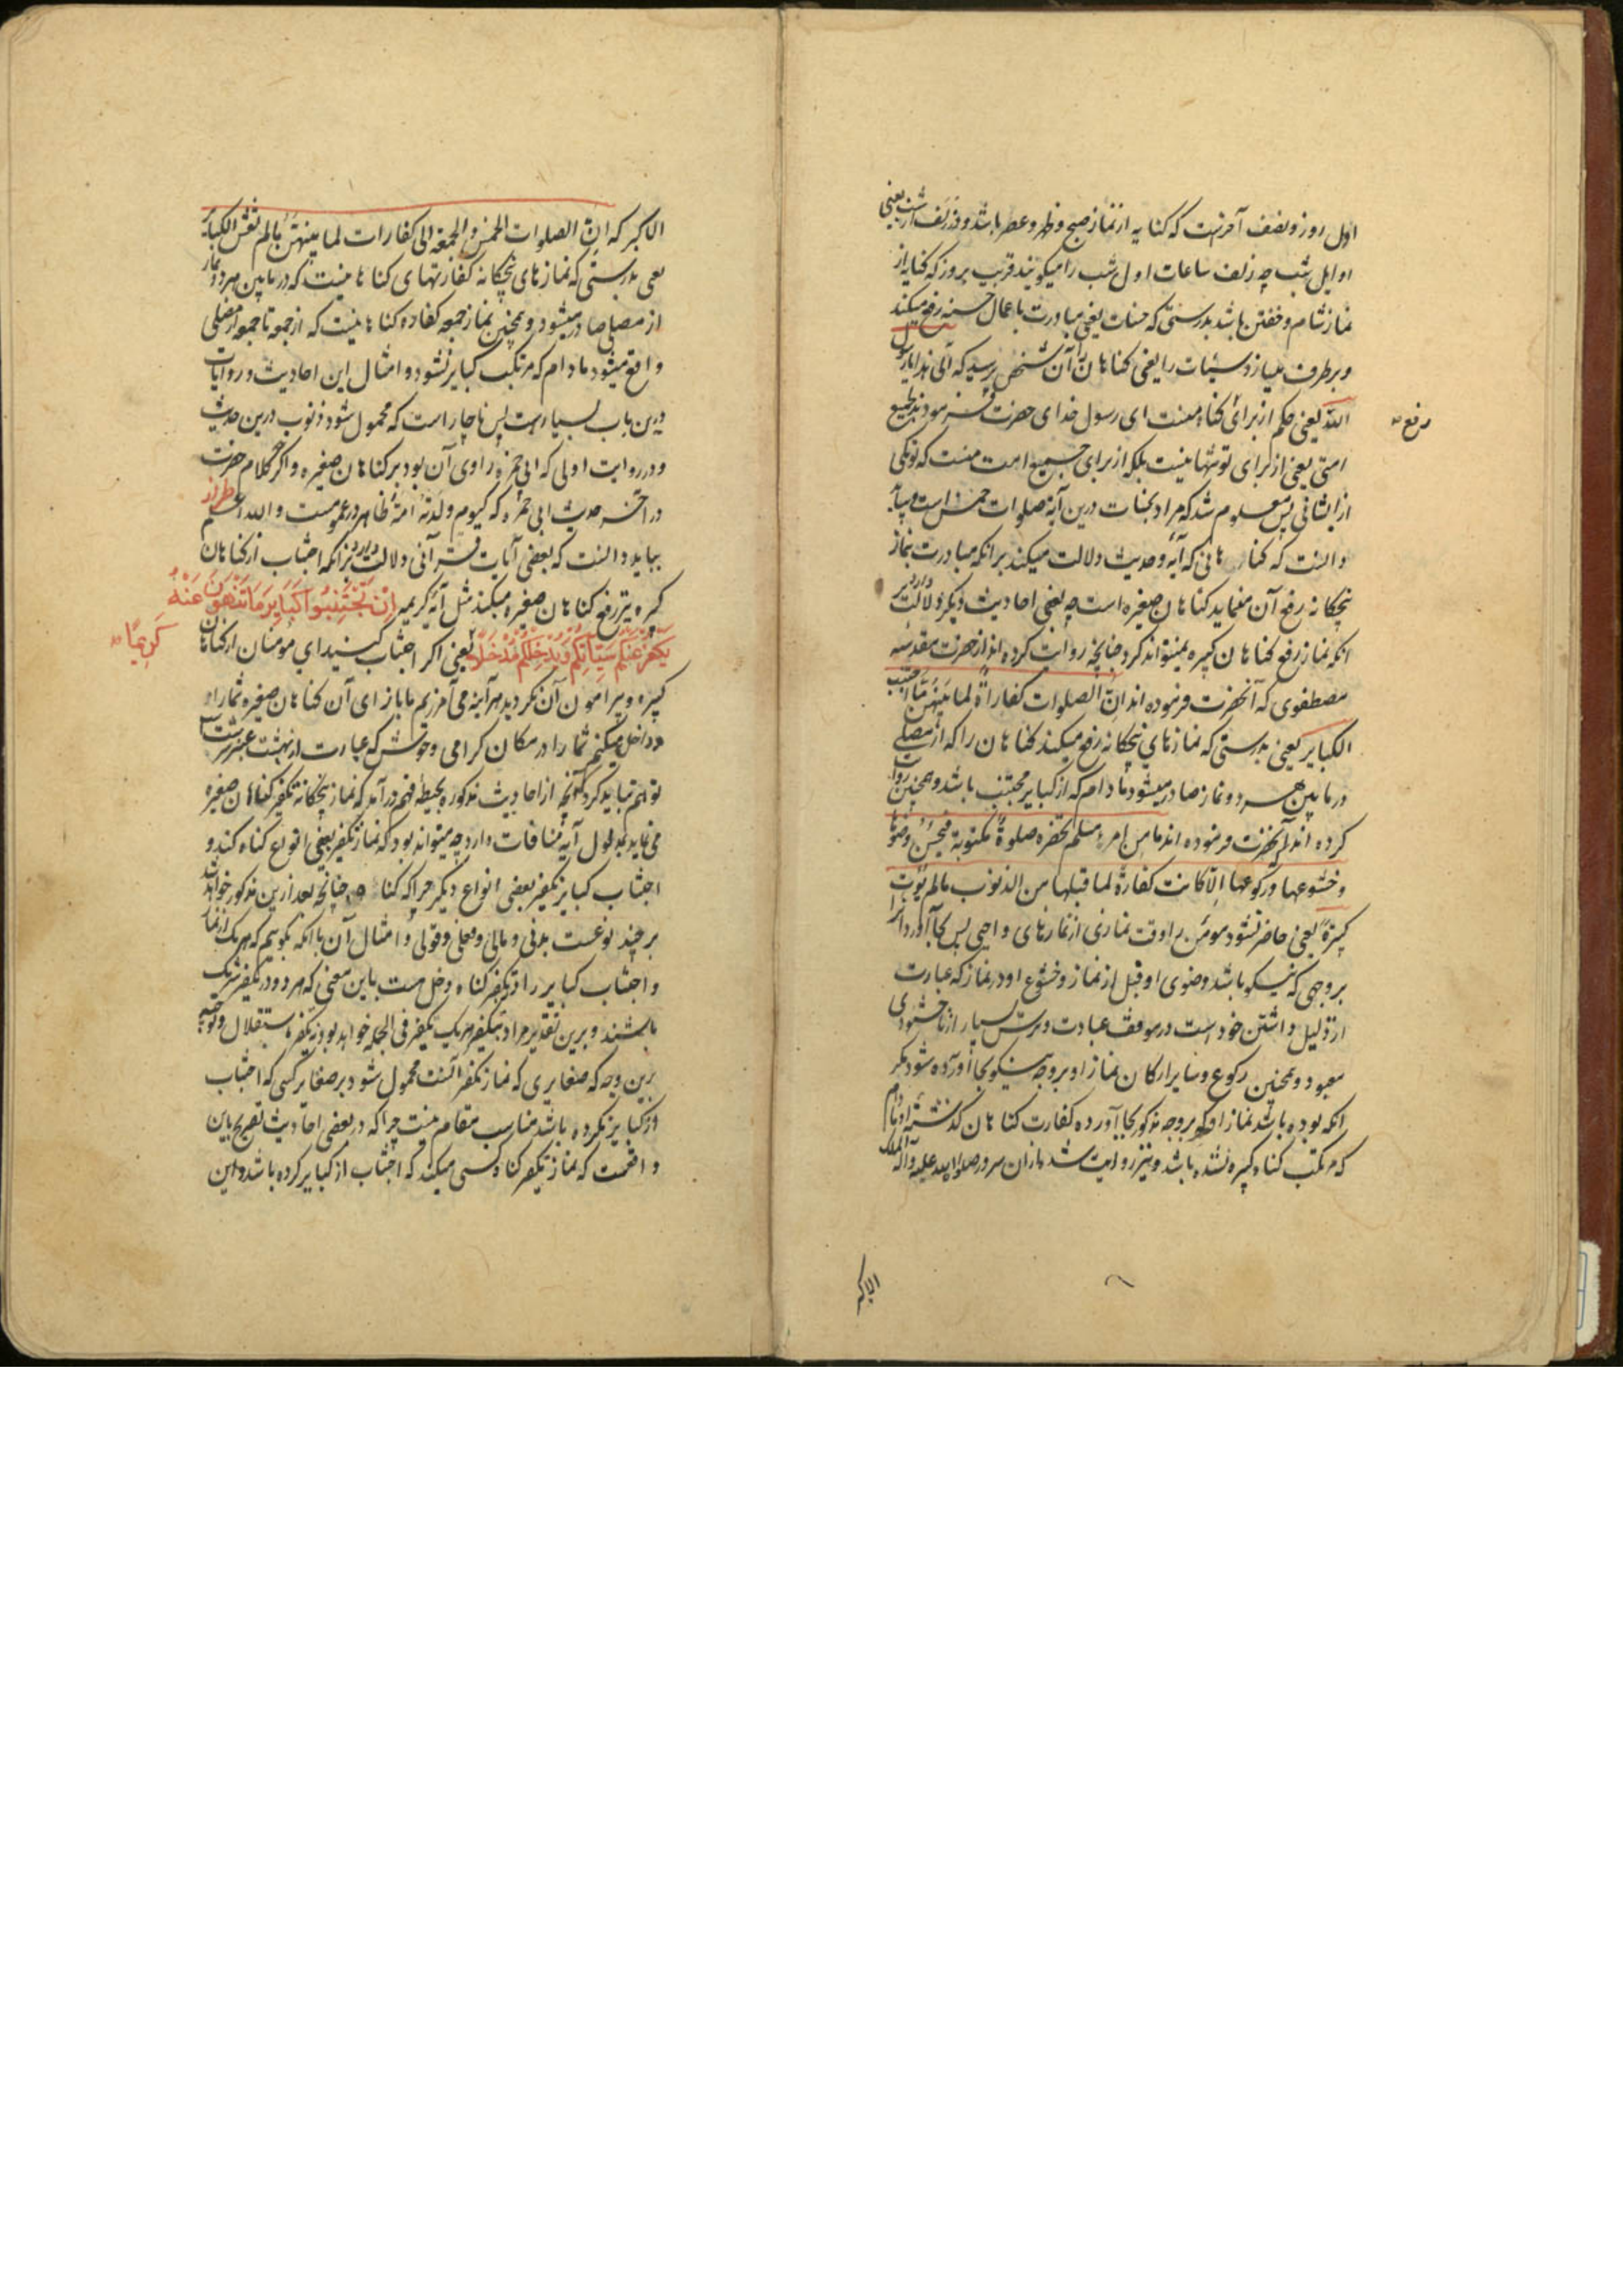 اول روز و نصف آخرست که کنایه از نماز صبح و ظهر و عصر باشد و زلفا یعنی
اوایل شب چه زلف ساعات اول شب را میکویند قریب بروز که کنایه از
نماز شام و خفتن باشد بدرستی که حسنات یعنی مبادرت باعمال حسنه رفع میکند
و برطرف میسازد سیئات را یعنی کناهان را آن شخص پرسید که الی هذا یا رسول
الله یعنی حکم از برای کناه منست ای رسول خدای حضرت فرمودند لجمیع
امتی یعنی از برای تو تنها نیست بلکه از برای جمیع امت منست که تو یکی
از ایشانی پس معلوم شد که مراد بحسنات درین آیه صلوات خمس است و بباید
دانست که کناهانی که آیه و حدیث دلالت میکند برانکه مبادرت بنماز
پنجکانه رفع آن مینماید کناهان صغیره است چه بعضی احادیث دیکر دلالت دارد بر
انکه نماز رفع کناهان کبیره نمیتواند کرد چنانچه روایت کرده اند از حضرت مقدسه
مصطفوی که آنحضرت فرموده اند ان الصلوات کفارة لما بینهن ما اجتنب
الکبایر یعنی بدرستی که نمازهای پنجکانه رفع میکند کناهان را که از مصلی
در مابین هر دو نماز صادر میشود مادام که از کبایر مجتنب باشد و همچنین روایت
کرده اند که آنحضرت فرموده اند ما من امرء مسلم تحضره صلوة مکتوبة فیحسن وضوءها
و خشوعها و رکوعها الا کانت کفارة لما قبلها من الذنوب مالم یؤت
کبیرة یعنی حاضر نشود مومن را وقت نمازی از نمازهای واجبی پس بجا آورد آنرا
بروجهی که نیکو باشد وضوی او قبل از نماز و خشوع او در نماز که عبارت
از ذلیل داشتن خود است در موقف عبادت و ترس بسیار از ناخشنودی
معبود و همچنین رکوع و سایر ارکان نماز او بروجه نیکو بجا آورده شود مکر
انکه بوده باشد نماز او که بروجه مذکور بجا آورده کفارت کناهان کذشته او مادام
که مرتکب کناه کبیره نشده باشد و نیز روایت شده از ان سرور صلوات الله علیه و آله الملک
رفع
۶
الاکبر
الاکبر که ان الصلوات الخمس و الجمعة الی کفارات لما بینهن مالم تغش الکبایر
یعنی بدرستی که نمازهای پنجکانه کفارتهای کناهانیست که در مابین هر دو نماز
از مصلی صادر میشود و همچنین نماز جمعه کفاره کناهانیست که از جمعه تا جمعه از مصلی
واقع میشود مادام که مرتکب کبایر نشود و امثال این احادیث و روایات
درین باب بسیارست پس ناچار است که محمول شود ذنوب درین حدیث
و در روایت اولی که ابی حمزه راوی آن بود بر کناهان صغیره و اکرچه کلام حضرت
در آخر حدیث ابی حمزه که کیوم ولدته امه ظاهر در عمومست و الله اعلم طراز
بباید دانست که بعضی آیات قرآنی دلالت دارد برانکه اجتناب از کناهان
کبیره نیز رفع کناهان صغیره میکند مثل آیه کریمه اِنْ تَجْتَنِبُوا کَبَایِرَ مَا تُنْهَوْنَ عَنْهُ
نُکَفِّرْ عَنْکُمْ سَیِّئَاتِکُمْ وَنُدْخِلْکُمْ مُدْخَلًا یعنی اکر اجتناب کنید ای مومنان از کناهان
کَرِیمًا
کبیره و پیرامون آن نکردید هر آینه می آمرزیم ما بازای آن کناهان صغیره شما را و
داخل میکنیم شما را در مکان کرامی و خوش که عبارت از بهشت عنبرسرشت است
توهم نباید کرد که آنچه از احادیث مذکوره بحیطه فهم درآمد که نماز پنجکانه تکفیر کناهان صغیره
می نماید بمدلول آیه منافات دارد چه میتواند بود که نماز تکفیر بعضی انواع کناه کند و
اجتناب کبایر تکفیر بعضی انواع دیکر چرا که کناه چنانچه بعد ازین مذکور خواهد شد
بر چند نوعست بدنی و مالی و فعلی و قولی و امثال آن یا انکه بکوییم که هر یک از نماز
و اجتناب کبایر را در تکفیر کناه دخل هست باین معنی که هر دو در تکفیر شریک
باشند و برین تقدیر مراد بتکفیر هر یک تکفیر فی الجمله خواهد بود نه تکفیر باستقلال و توجیه
برین وجه که صغایری که نماز مکفر آنست محمول شود بر صغایر کسی که اجتناب
از کبایر نکرده باشد مناسب مقام نیست چرا که در بعضی احادیث تصریح باین
واقعست که نماز تکفیر کناه کسی میکند که اجتناب از کبایر کرده باشد و این